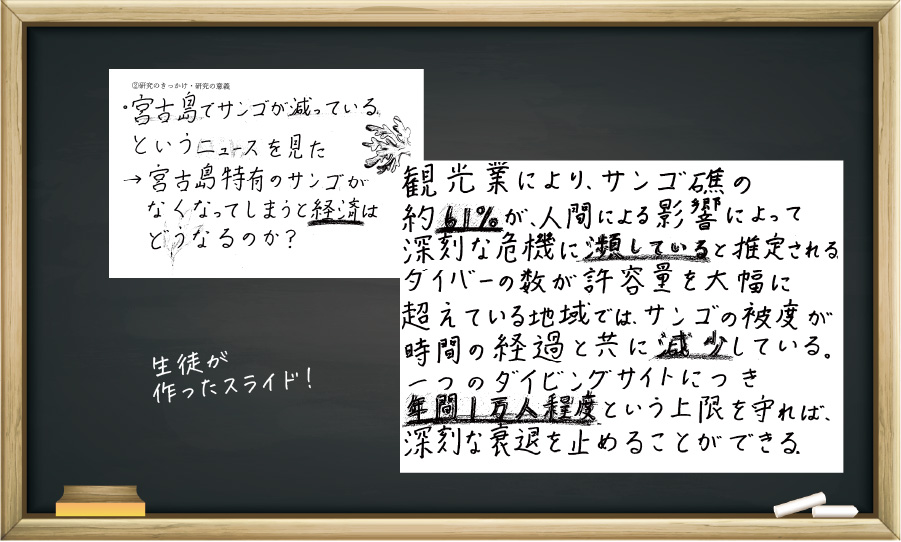 ②研究のきっかけ・研究の意義
・宮古島でサンゴが減っている
というニュースを見た
→宮古島特有のサンゴが
なくなってしまうと経済は
どうなるのか?
観光業により、サンゴ礁の
約61%が、人間による影響によって
深刻な危機に瀕していると推定される
ダイバーの数が許容量を大幅に
超えている地域では、サンゴの被度が
時間の経過と共に減少している。
一つのダイビングサイトにつき
年間1万人程度という上限を守れば、
深刻な衰退を止めることができる。
生徒が
作ったスライド!